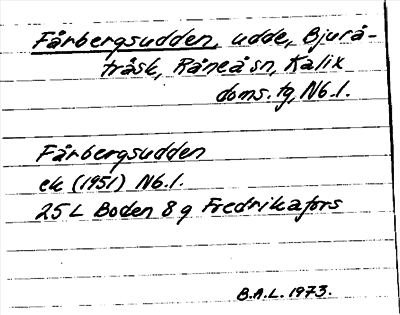 Fårbergsudden, udde, Bjurå-
träsk, Råneå sn, Kalix
doms. tg, Nb.l.
Fårbergsudden
ek (1951) Nb.l.
25 L Boden 8 g Fredrikafors
B.A.L. 1973.